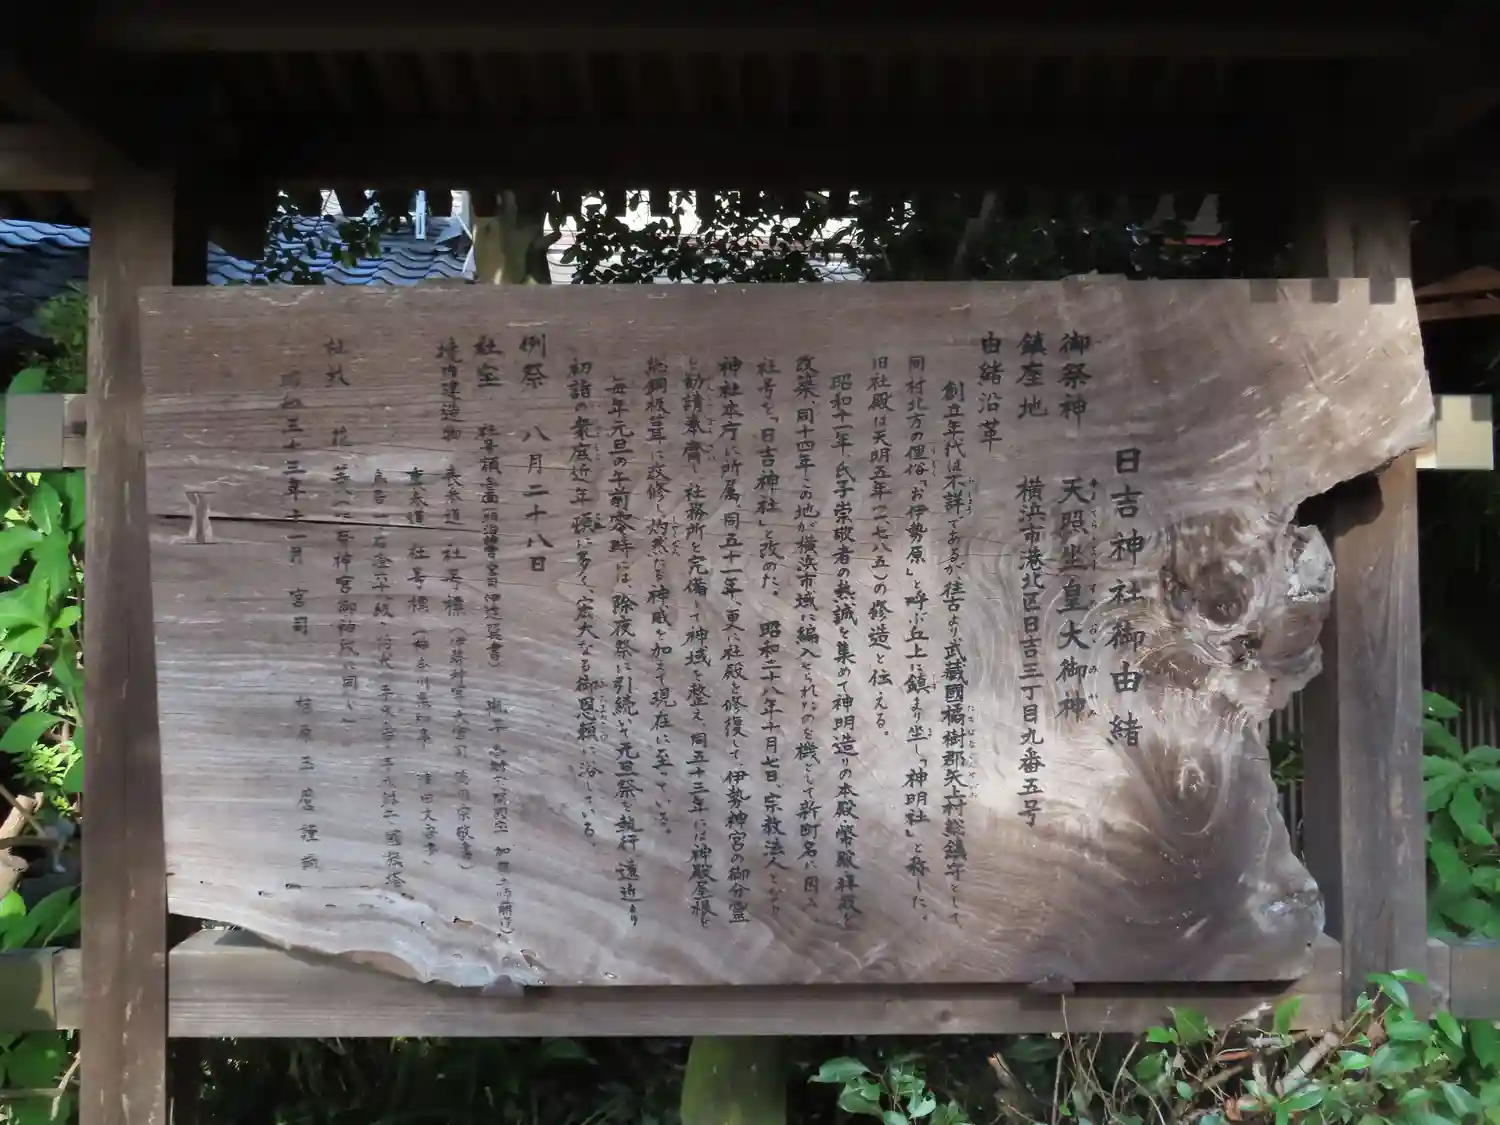 日吉神社御由緒
御祭神 天照坐皇大御神
鎮座地 横浜市港北区日吉三丁目九番五号
由緒沿革
創立年代は不詳であるが往古より武蔵國橘樹郡矢上村総鎮守として
同村北方の俚俗「お伊勢原」と呼ぶ丘上に鎮まり坐し「神明社」と称した。
旧社殿は天明五年(一七八五)の修造と伝える。
昭和十一年、氏子崇敬者の熱誠を集めて神明造りの本殿、幣殿、拝殿を
改築、同十四年この地が横浜市域に編入せられたのを機として新町名に因み
社号を「日吉神社」と改めた。 昭和二十八年十月七日、宗教法人となり
神社本庁に所属、同五十一年、更に社殿を修復して、伊勢神宮の御分霊
を勧請奉齋し社務所を完備して神域を整え、同五十三年には神殿屋根を
総銅板葺に改修し灼然たる神威を加えて現在に至っている。
毎年元旦の午前零時には、除夜祭に引続いて元旦祭を執行、遠近より
初詣の衆庶近年頓に多く、宏大なる御恩頼に浴している。
例祭 八月二十八日
社宝 社号額
境内建造物 表参道 社号標
裏参道 社号標
鳥居一 石燈
社紋 花菱
昭和 三年十一月 宮司